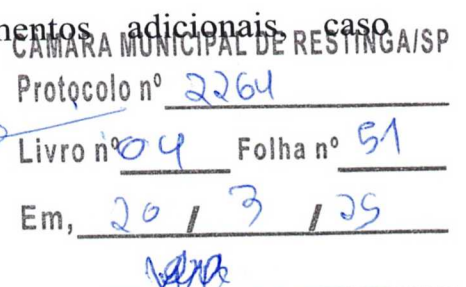 mentos adicionais, caso
CAMARA MUNICIPAL DE RESTINGA/SP
Protocolo nº 2264
Livro nº 04 Folha nº 51
Em, 20 / 3 / 25